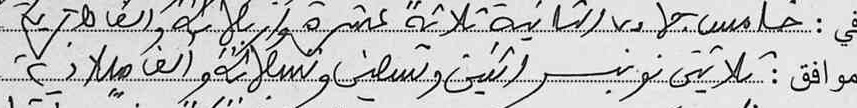 في : خامس جمادى الثانية ثلاثة عشرة وأربعمائة وألف هجرية
موافق : ثلاثين نونبر اثنين وتسعين وتسعمائة وألف ميلادية